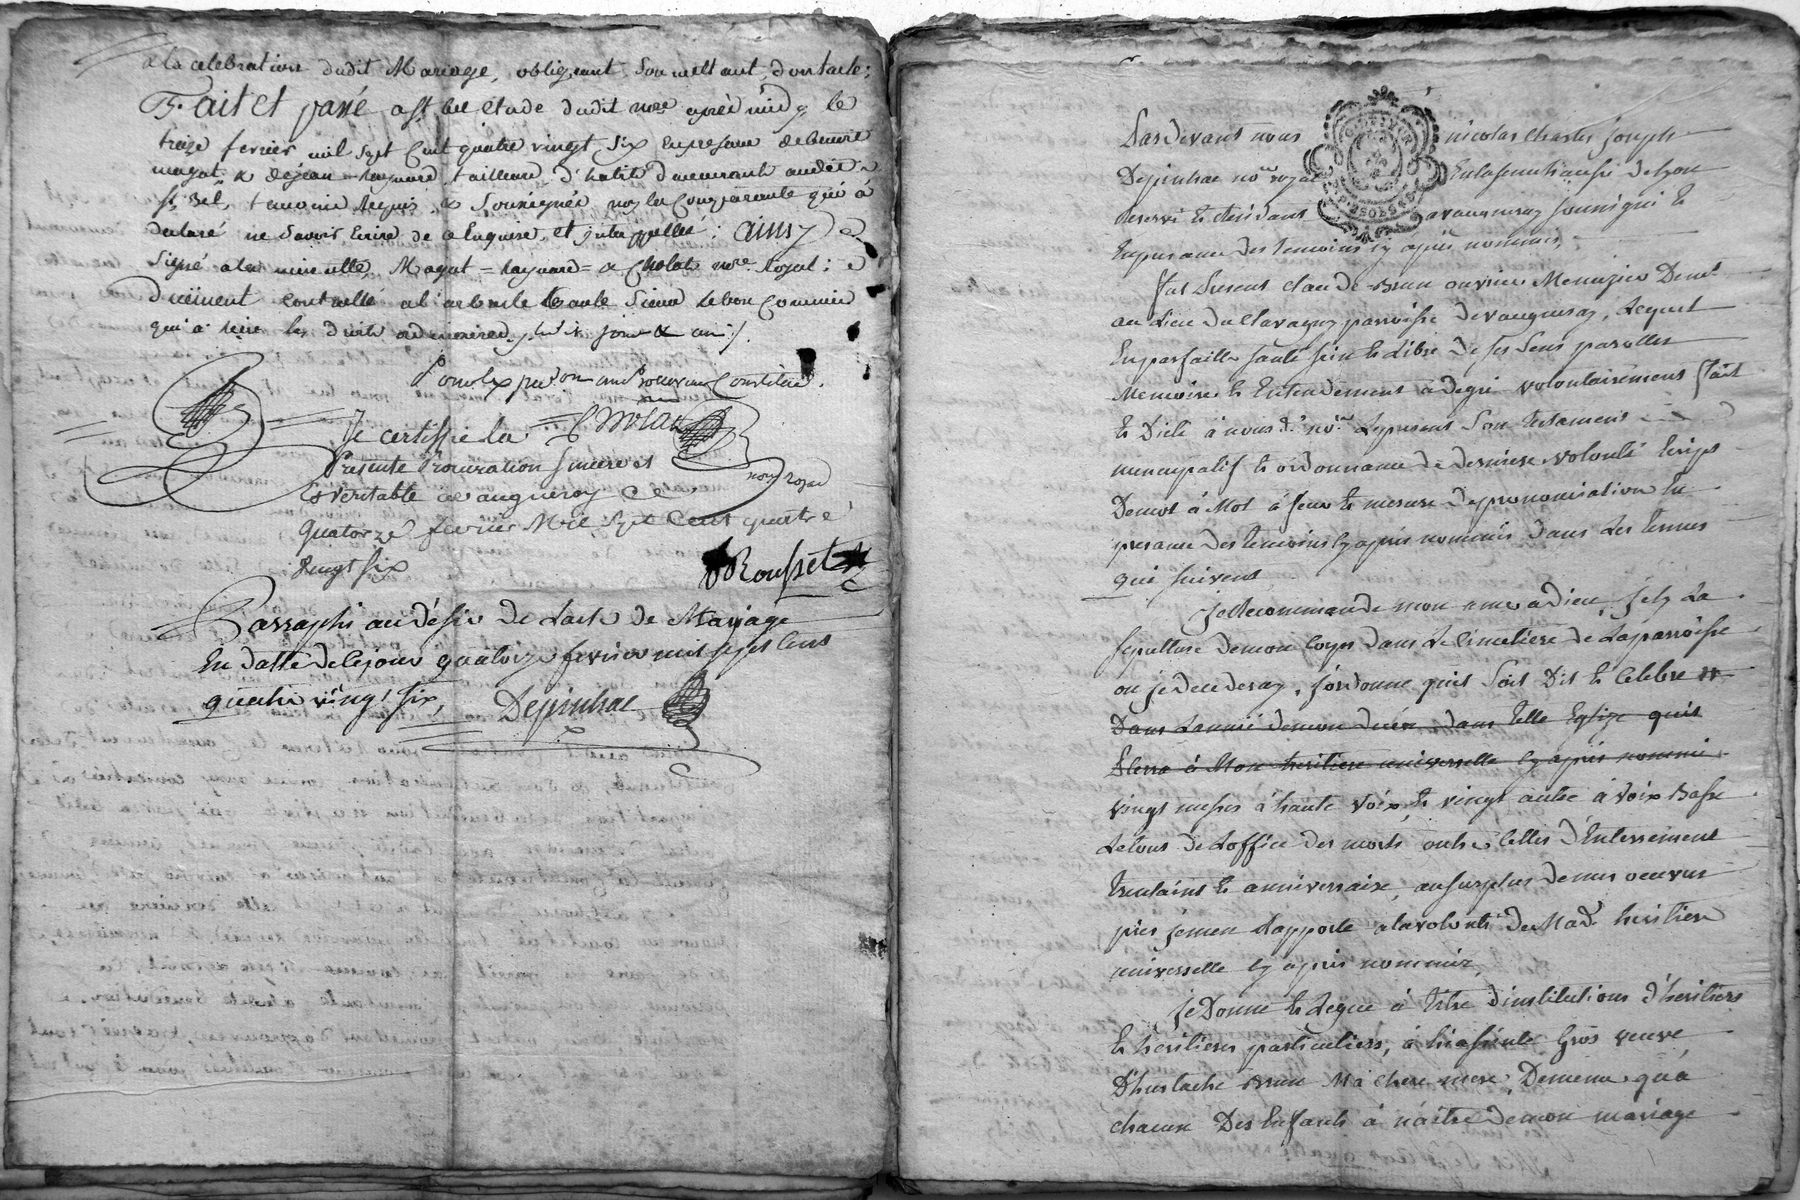 a la celebration dudit Mariage, obligeant, soumettant, dont acte;
Fait et passé a st bel etude dudit nore après midy le
treize fevrier mil sept Cent quatre vingt six en presence de benoit
magat & de jean taynard tailleurs d'habits demeurants audit
st. Bel, temoins requis & soussignés non la Comparante qui a
declaré ne savoir Ecrire de ce Enquise et interpellée: ainsy
signé a la minutte, Magat = taynard = & Cholat nore Royal;
Duëment Controllé a l'arbresle
qui a les droits jour & an ./.
Pour Constituée.
Je certifie la Cholat
Presente Procuration sincere et
veritable a vaugneray ce nore royal
quatorze fevrier Mil sept Cent quatre
vingt six
Rousset
Parraphé au désir de Lacte de Mariage
En datte de ce jour quatorze fevrier mil sept Cens
quatre vingt six, Depinhac
Pardevant nous nicolas Charles Joseph
Depinhac nore royal En la senechaussée de Lyon
reservé Et residant a vaugneray soussigné Et
En presence des temoins cy après nommés,
fut Present claude Brun ouvrier Menuizier Demt
au Lieu du Clavagny parroisse de vaugneray, Lequel
En parfaitte santé sain Et Libre de ses sens parolles
Memoire Et Entendement à de gré volontairement fait
Et Dicté à nous dt nore Lepresent Son testament
nuncupatif Et ordonnance de derniere volonté Ecrips
Demot à Mot à feur Et mesure de prononciation En
presence des temoins cy après nommés Dans Les termes
qui suivent
Je Recommande mon ame a dieu, J'elis La
sepulture de mon Corps dans Le cimetiere de La parroisse
ou Je decederay, J'ordonne qu'il soit Dit Et Celebré
Dans L'année de mon decès dans telle Eglize quil
Plerra à Mon heritiere universelle cy après nommée
vingt messes à haute voix, Et vingt autre à voix Basse
Le tous de Loffice des morts outre Celles d'Enterrement
trentains Et anniversaire, au surplus de mes oeuvres
pies Jemen Rapporte a la volonté de Mad. heritiere
universelle cy après nommée,
Je Donne Et Legue à titre d'institutions d'heritiers
Et heritieres particuliers, à hiacinte Gros veuve
D'heustache Brun Ma chere mere, Demême qu'à
chacun Des Enfants à naitre de mon mariage